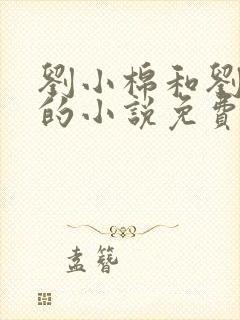 劉小棉和劉
的小說免費
盍簪